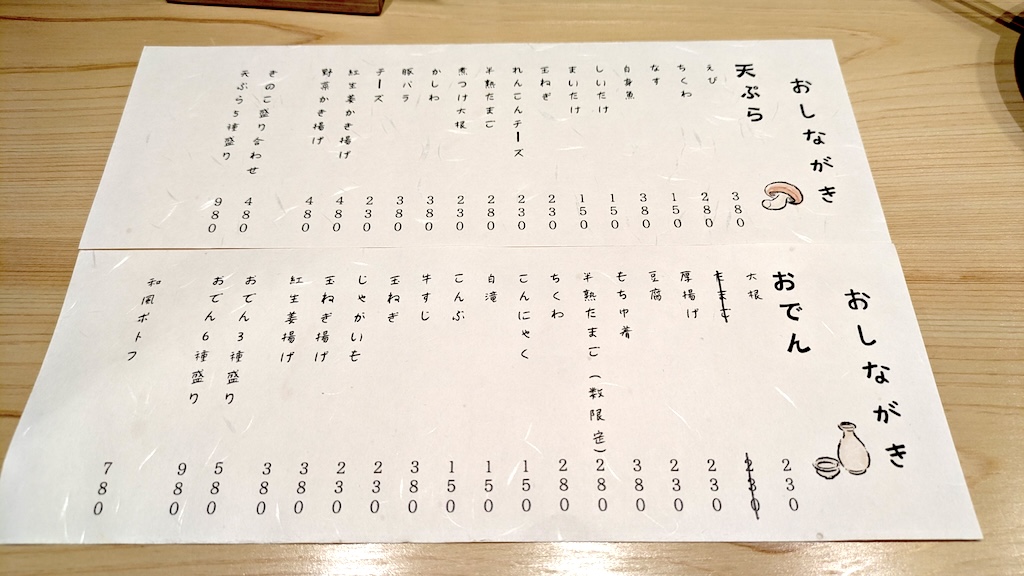 おしながき
天ぷら
えび 380
ちくわ 280
なす 150
白身魚 380
しいたけ 150
まいたけ 150
玉ねぎ 230
れんこんチーズ 230
半熟たまご 280
煮つけ大根 230
かしわ 380
豚バラ 380
チーズ 230
紅生姜かき揚げ 480
野菜かき揚げ 480
きのこ盛り合わせ 480
天ぷら5種盛り 980
おしながき
おでん
大根 230
たまご 230
厚揚げ 230
豆腐 230
もち巾着 380
半熟たまご(数限定) 280
ちくわ 280
こんにゃく 150
白滝 150
こんぶ 150
牛すじ 380
玉ねぎ 230
じゃがいも 230
玉ねぎ揚げ 380
紅生姜揚げ 380
おでん3種盛り 580
おでん6種盛り 980
和風ポトフ 780